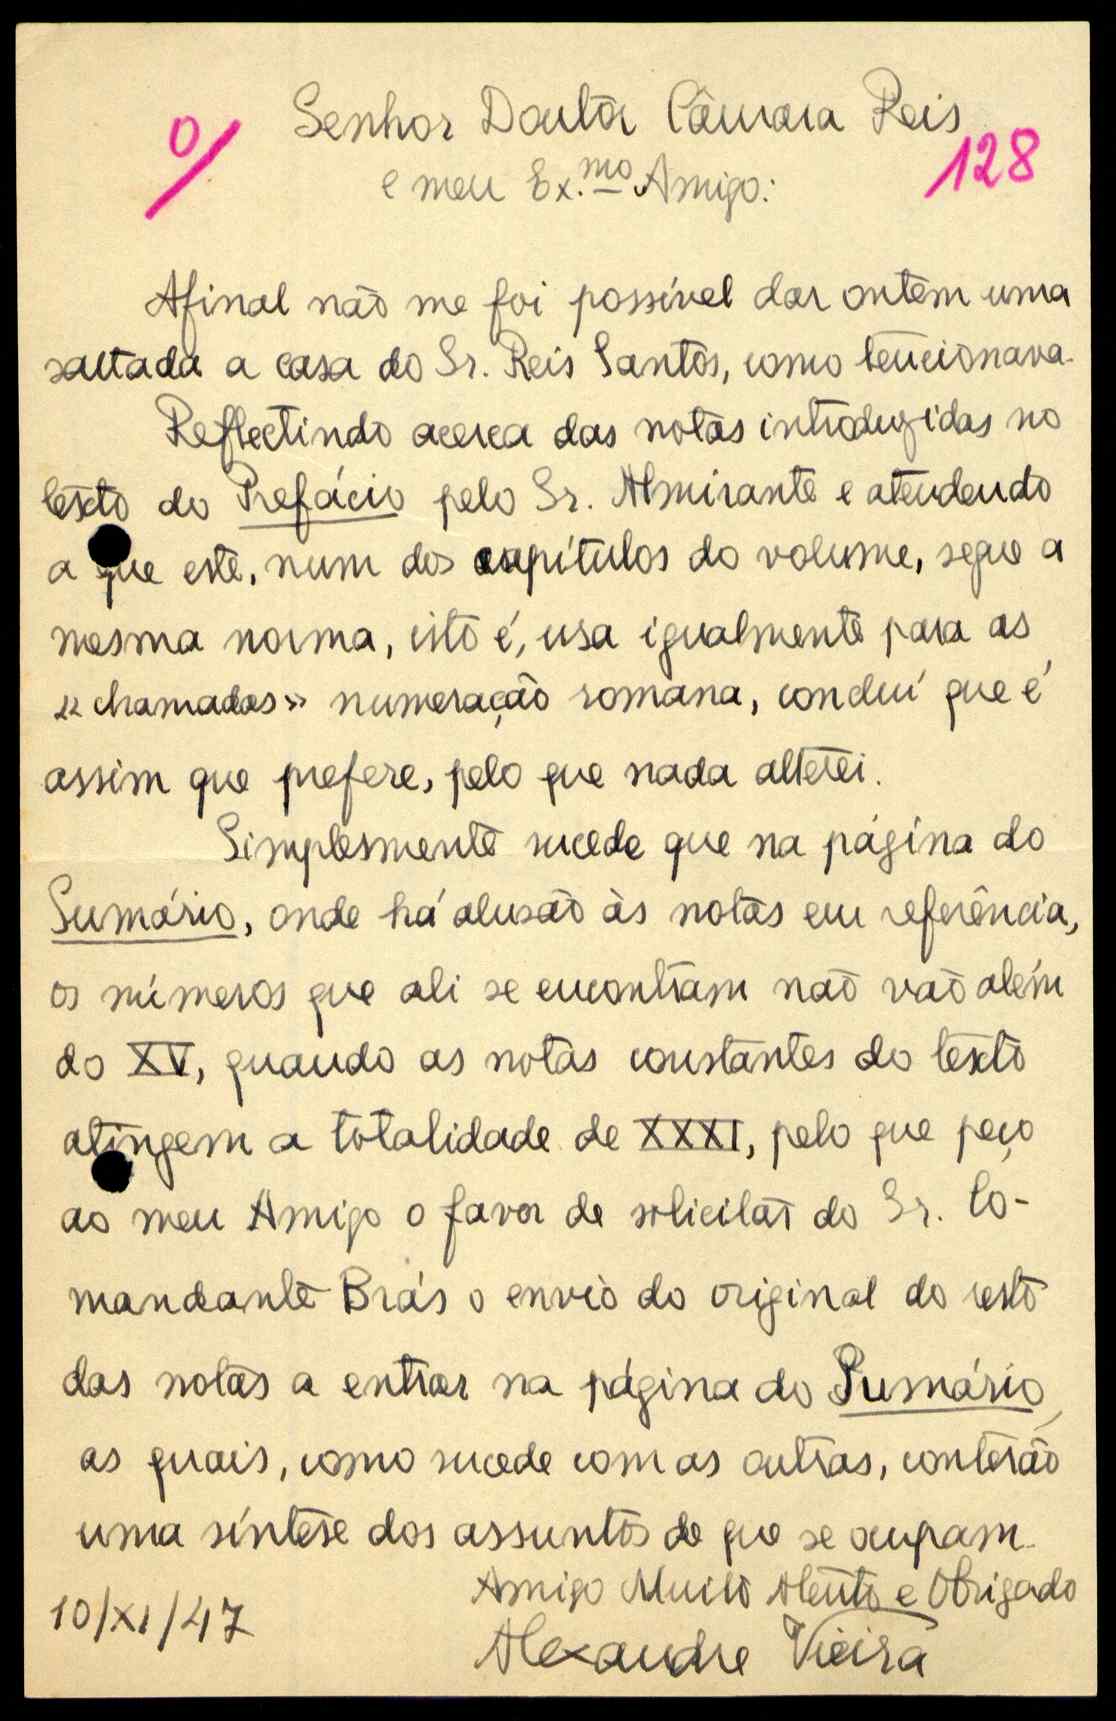 Senhor Doutor Câmara Reis
0/ 128
e meu Ex.mo Amigo:
Afinal não me foi possível dar ontem uma
saltada a casa do Sr. Reis Santos, como tencionava.
Reflectindo acerca das notas introduzidas no
texto do Prefácio pelo Sr. Almirante e atendendo
a que este, num dos capítulos do volume, segue a
mesma norma, isto é, usa igualmente para as
«chamadas» numeração romana, concluí que é
assim que prefere, pelo que nada alterei.
Simplesmente sucede que na página do
Sumário, onde há alusão às notas em referência,
os números que ali se encontram não vão além
do XV, quando as notas constantes do texto
atingem a totalidade de XXXI, pelo que peço
ao meu Amigo o favor de solicitar do Sr. Co-
mandante Brás o envio do original do resto
das notas a entrar na página do Sumário,
as quais, como sucede com as outras, conterão
uma síntese dos assuntos de que se ocupam.
Amigo Muito Atento e Obrigado
10/XI/47
Alexandre Vieira